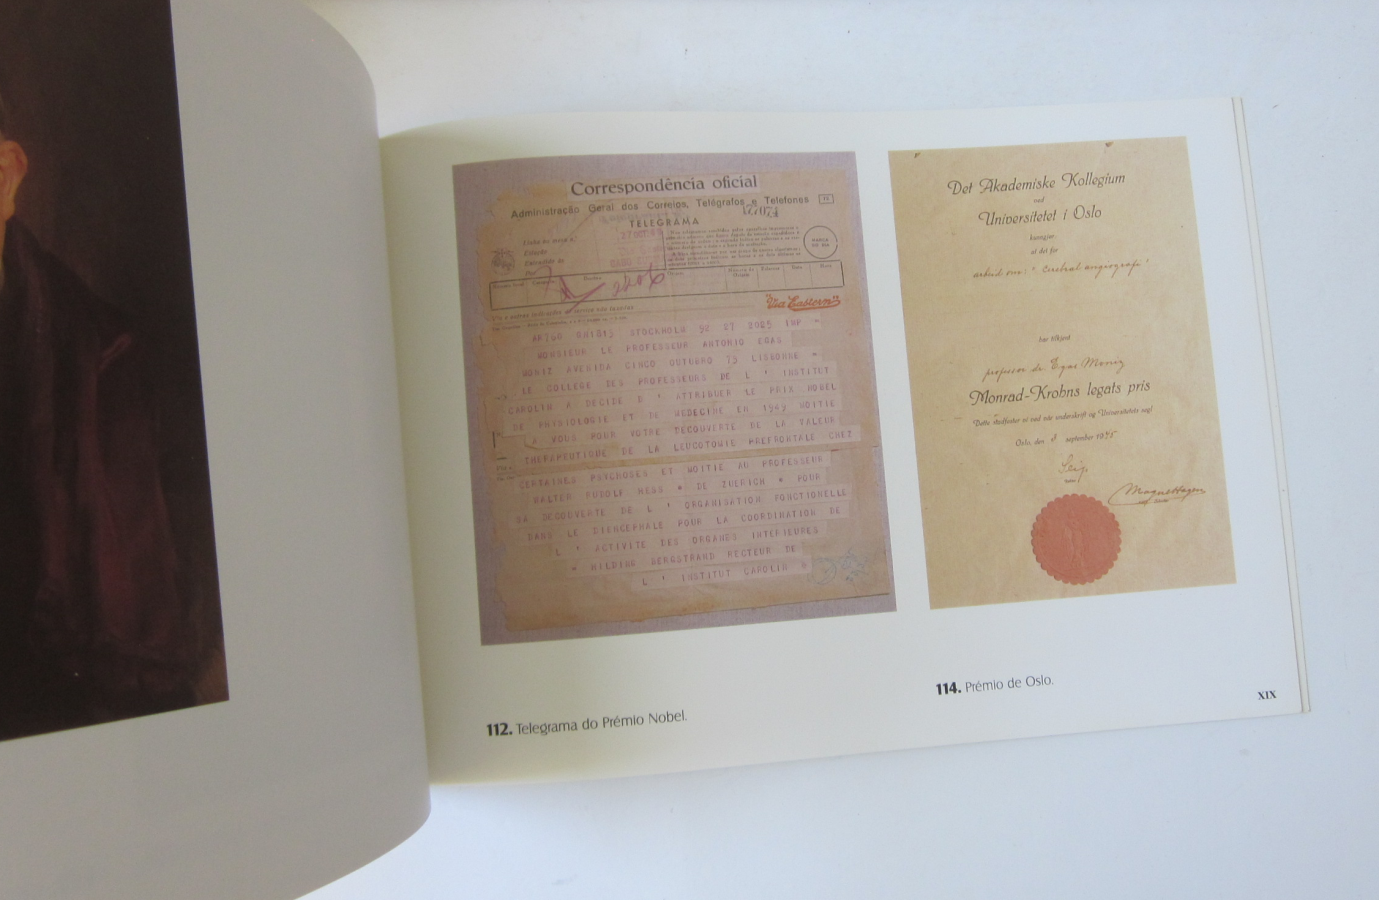 Correspondência oficial
Administração Geral dos Correios, Telégrafos e Telefones
TELEGRAMA
"Via Eastern"
STOCKHOLM 92 27 2025
MONSIEUR LE PROFESSEUR ANTONIO EGAS
MONIZ AVENIDA CINCO OUTUBRO 73 LISBONNE =
LE COLLEGE DES PROFESSEURS DE L ' INSTITUT
CAROLIN A DECIDE D ' ATTRIBUER LE PRIX NOBEL
DE PHYSIOLOGIE ET DE MEDECINE EN 1949 MOITIE
A VOUS POUR VOTRE DECOUVERTE DE LA VALEUR
THERAPEUTIQUE DE LA LEUCOTOMIE PREFRONTALE CHEZ
CERTAINES PSYCHOSES ET MOITIE AU PROFESSEUR
WALTER RUDOLF HESS = DE ZUERICH = POUR
SA DECOUVERTE DE L ' ORGANISATION FONCTIONELLE
DANS LE DIENCEPHALE POUR LA COORDINATION DE
L ' ACTIVITE DES ORGANES INTERIEURES
= HILDING BERGSTRAND RECTEUR DE
L ' INSTITUT CAROLIN =
112. Telegrama do Prémio Nobel.
Det Akademiske Kollegium
ved
Universitetet i Oslo
kunngjør
at det for
arbeid om: "Cerebral angiografi"
har tilkjent
professor dr. Egas Moniz
Monrad-Krohns legats pris
Dette stadfester vi ved vår underskrift og Universitetets segl
Oslo, den 8 september 1945
Seip
114. Prémio de Oslo.
XIX